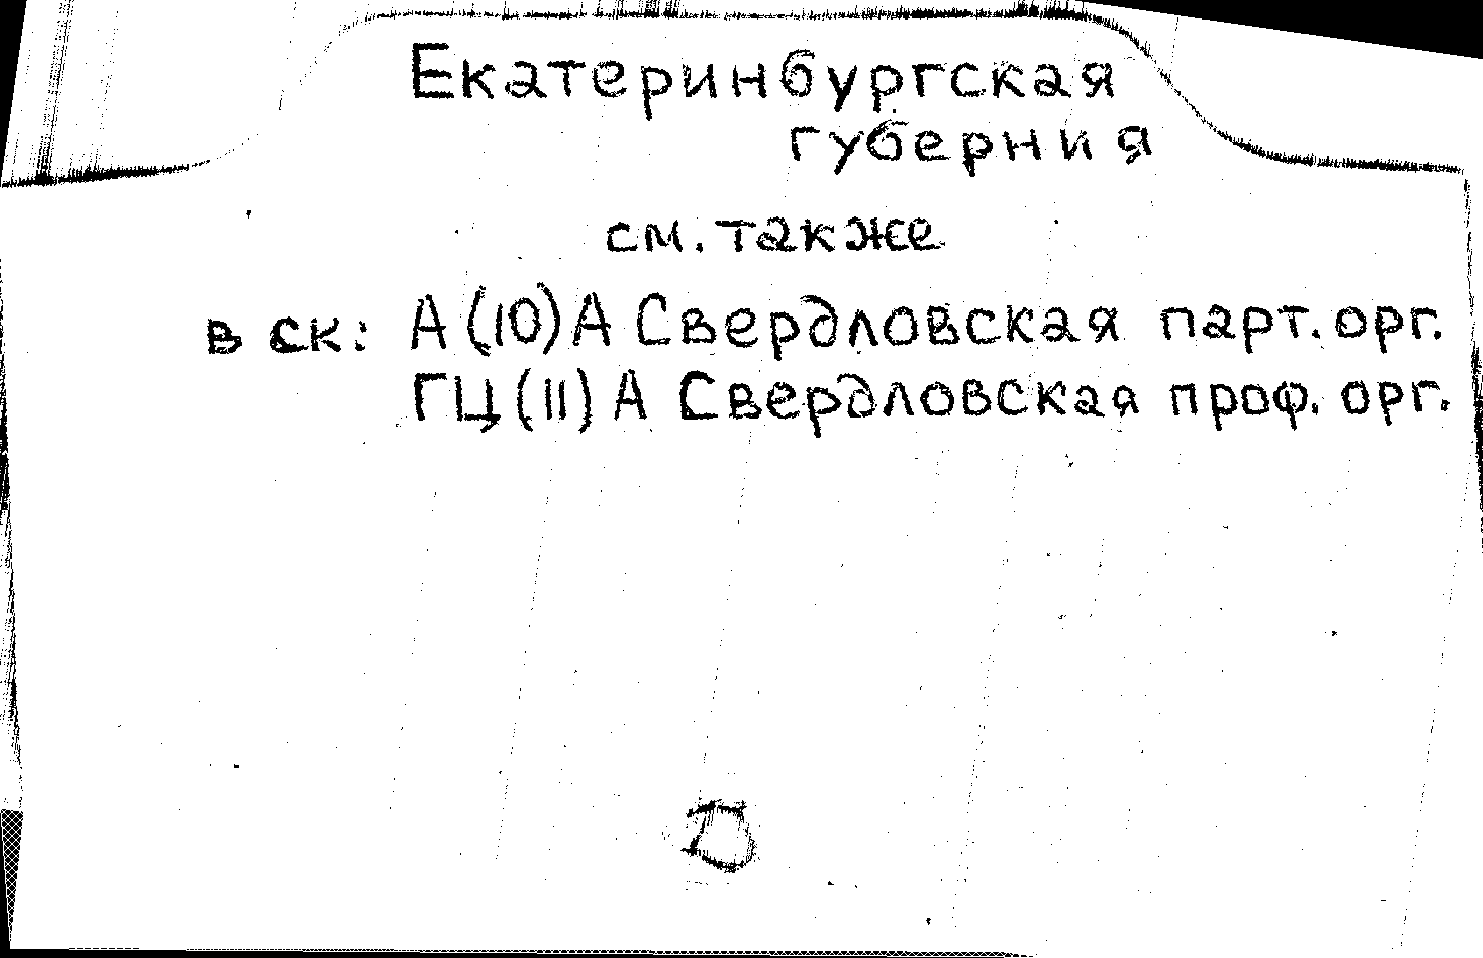 Екатеринбургская
губерния
см. также
в ск: А(10)А Свердловская парт. орг.
ГЦ(11)А Свердловская проф. орг.